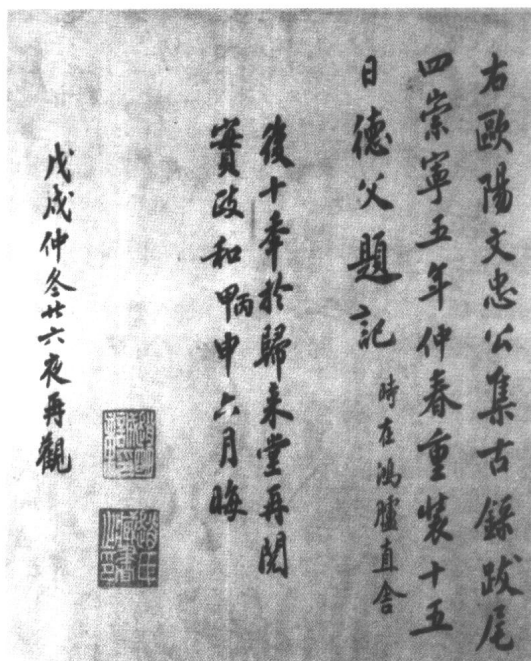 右歐陽文忠公集古錄跋尾
四崇寧五年仲春重裝十五
日德父題記 時在鴻臚直舍
後十年於歸來堂再閱
實政和甲丙申六月晦
戊戌仲冬廿六夜再觀